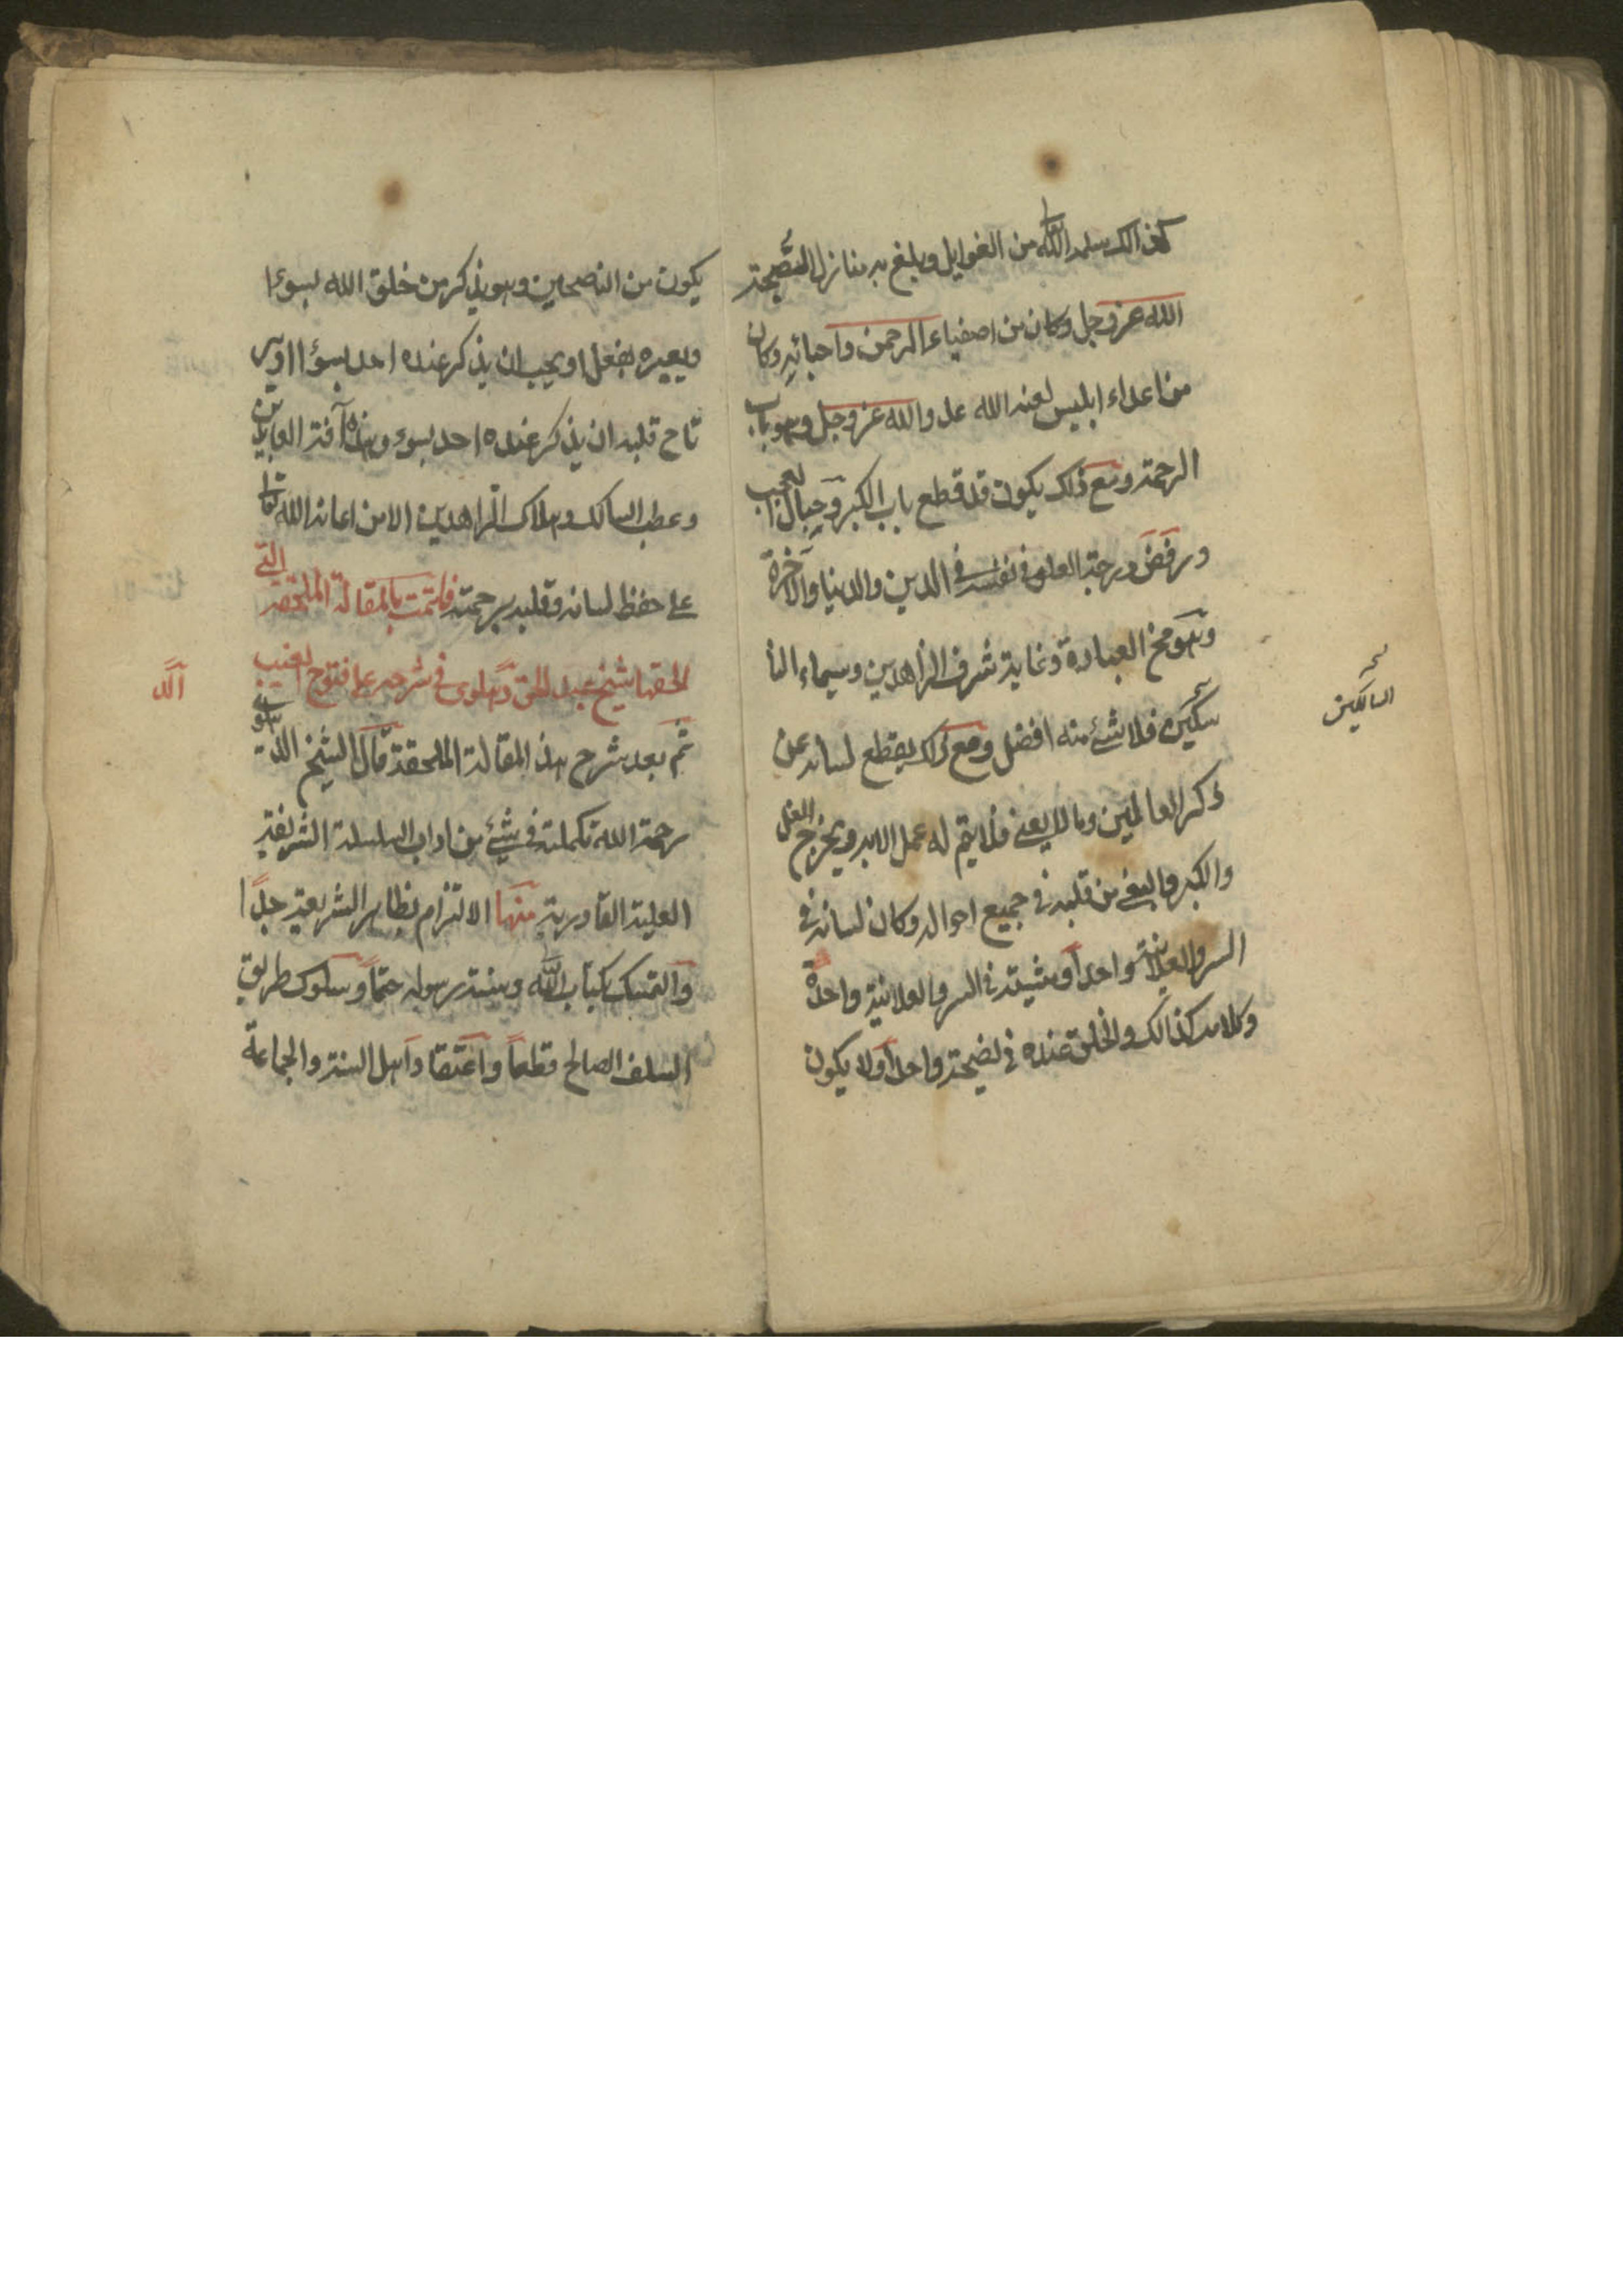 كان الك سلمه الله تعالى من الغوايل وبلغ به منازل النصيحة
الله عز وجل وكان من اصفياء الرحمن واحبائه وكان
من اعداء ابليس لعنه الله عدو الله عز وجل وهو باب
الرحمة ومع ذلك يكون قد قطع باب الكبر وحبال العجب
ورفض درجة العلو في نفسه في الدين والدنيا والآخرة
وهو مخ العبادة وغاية شرف الزاهدين وسيماء النا
سكين فلا شئ منه افضل ومع ذلك يقطع لسانه عن
ذكر العالمين وما لا يعنى فلا يتم له عمل الا به ويخرج الغل
والكبر والبغى من قلبه في جميع احواله وكان لسانه في
السر والعلانية واحدا ومشيته في السر والعلانية واحدة
وكلامه كذالك والخلق عنده في نصيحة واحدا ولا يكون
السالكين
يكون من النصحين وهو يذكر من خلق الله بسوءا
ويعيره بفعل او يحب ان يذكر عنده احد بسوءا او ير
تاح قلبه ان يذكر عنده احد بسوء وهذه آفة العابدين
وعطب السالك وهلاك الزاهدين الا من اعانه الله تعالى
على حفظ لسانه وقلبه برحمته فلتمت بالمقالة الملحقه التى
الحقها شيخ عبد الحق دهلوى في شرحه على فتوح الغيب
ثم بعد شرح هذا المقالة الملحقة قال الشيخ الد هلوى
رحمة الله تكملة في شئ من اداب السلسلة الشريفة
العلية القادرية منها الالتزام بظاهر الشريعة جدا
والتمسك بكتاب الله وسنة رسوله حتما وسلوك طريق
السلف الصالح قطعا واعتقاد اهل السنة والجماعة